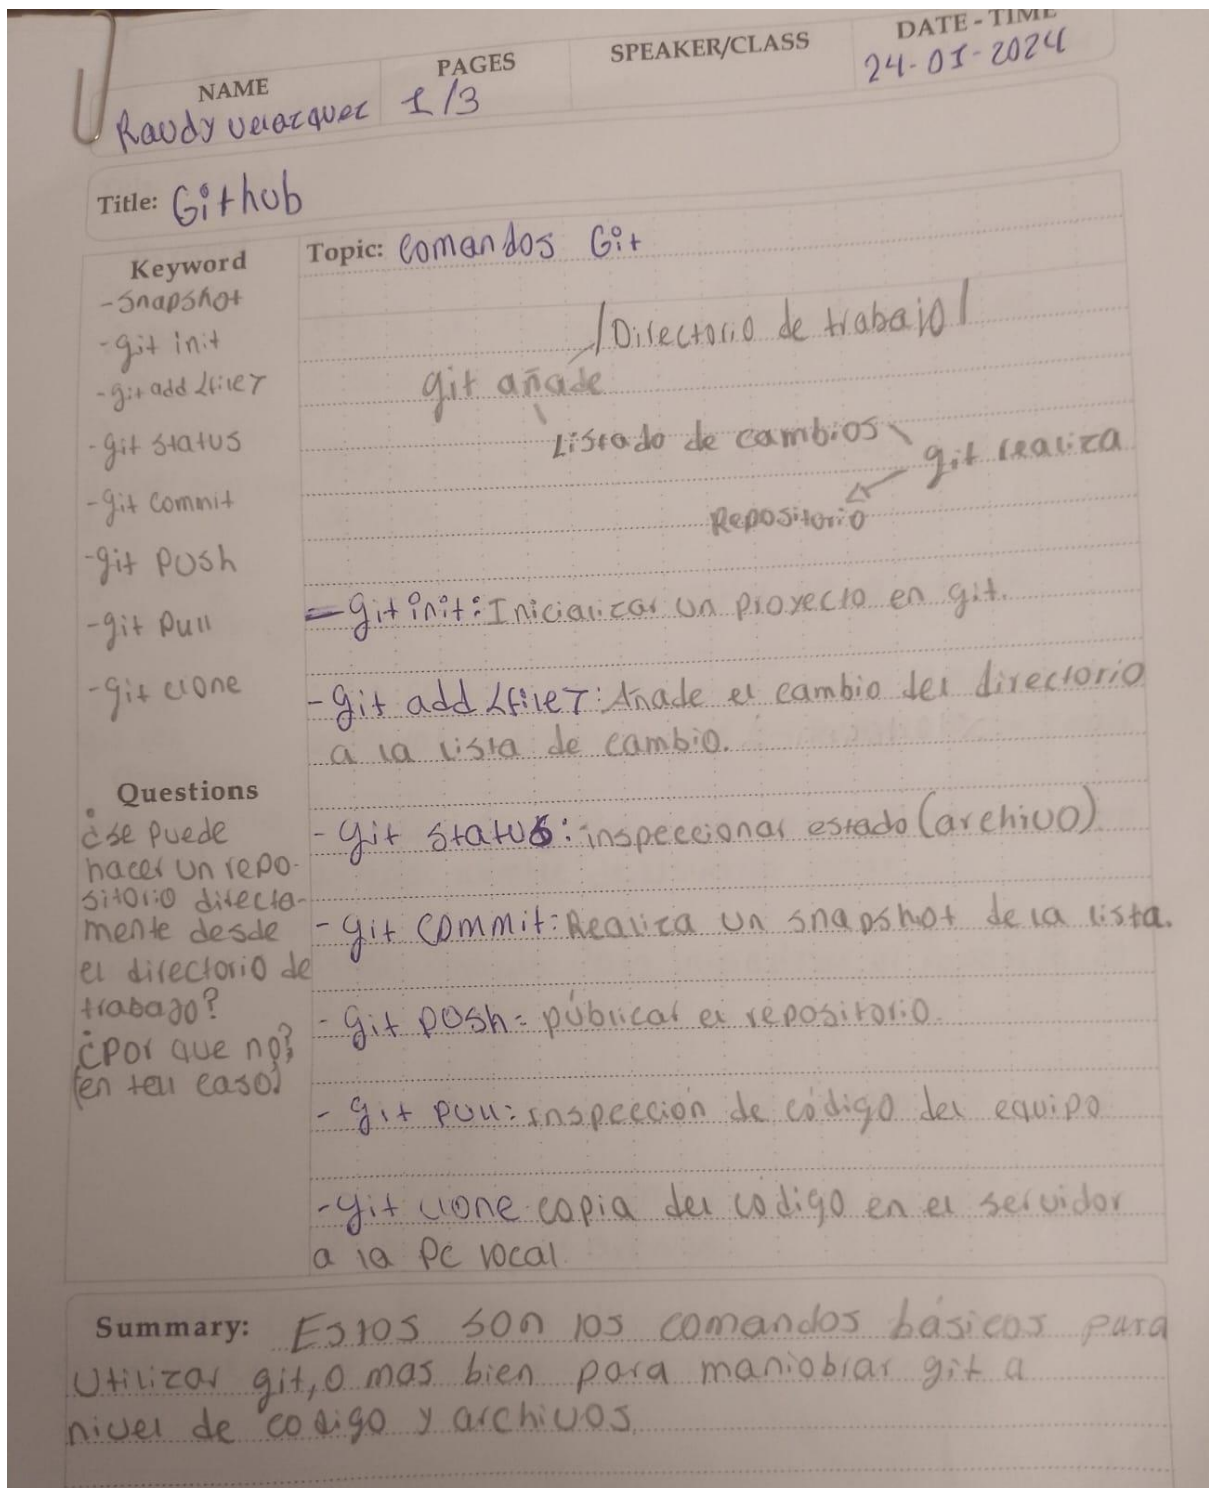 NAME
PAGES
SPEAKER/CLASS
DATE - TIME
Raudy velazquez
1/3
24-01-2024
Title: Github
Keyword
-Snapshot
-git init
-git add <file>
-git status
-git commit
-git push
-git pull
-git clone
Questions
¿se puede
hacer un repo-
sitorio directa-
mente desde
el directorio de
trabajo?
¿Por que no?
(en tell caso)
Topic: Comandos Git
/Directorio de trabajo/
git añade
Listado de cambios
git realiza
Repositorio
- git init: Inicializar un proyecto en git.
- git add <file>: Anade el cambio del directorio
a la lista de cambio.
- git status: inspeccionar estado (archivo)
- git commit: Realiza un snapshot de la lista.
- git posh: públicar el repositorio.
- git pull: inspección de código del equipo
- git clone copia del codigo en el servidor
a la Pc local.
Summary: Estos son los comandos básicos para
Utilizar git, o mas bien para maniobrar git a
nivel de codigo y archivos.